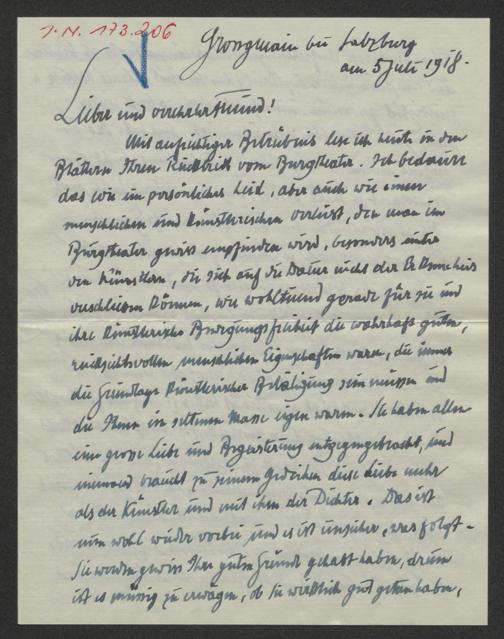 I.N. 173.206
Grossgmain bei Salzburg
am 5 Juli 1918.
Lieber und verehrter Freund!
Mit aufrichtiger Betrübnis lese ich heute in den
Blättern Ihren Rücktritt vom Burgtheater. Ich bedaure
das wie ein persönliches Leid, aber auch wie einen
menschlichen und künstlerischen Verlust, den man im
Burgtheater gewiss empfinden wird, besonders unter
den Künstlern, die sich auf die Dauer nicht der Erkenntnis
verschliessen können, wie wohltuend gerade für sie und
ihre künstlerische Bewegungsfreiheit die wahrhaft guten,
rücksichtsvollen menschlichen Eigenschaften waren, die immer
die Grundlage künstlerischer Betätigung sein müssen und
die Ihnen in seltenem Masse eigen waren. Sie haben allen
eine grosse Liebe und Begeisterung entgegengebracht, und
niemand braucht zu seinem Gedeihen diese Liebe mehr
als der Künstler und mit ihm der Dichter. Das ist
nun wohl wieder vorbei und es ist unsicher, was folgt.
Sie werden gewiss Ihre guten Gründe gehabt haben, drum
ist es müssig zu erwägen, ob Sie wirklich gut getan haben,